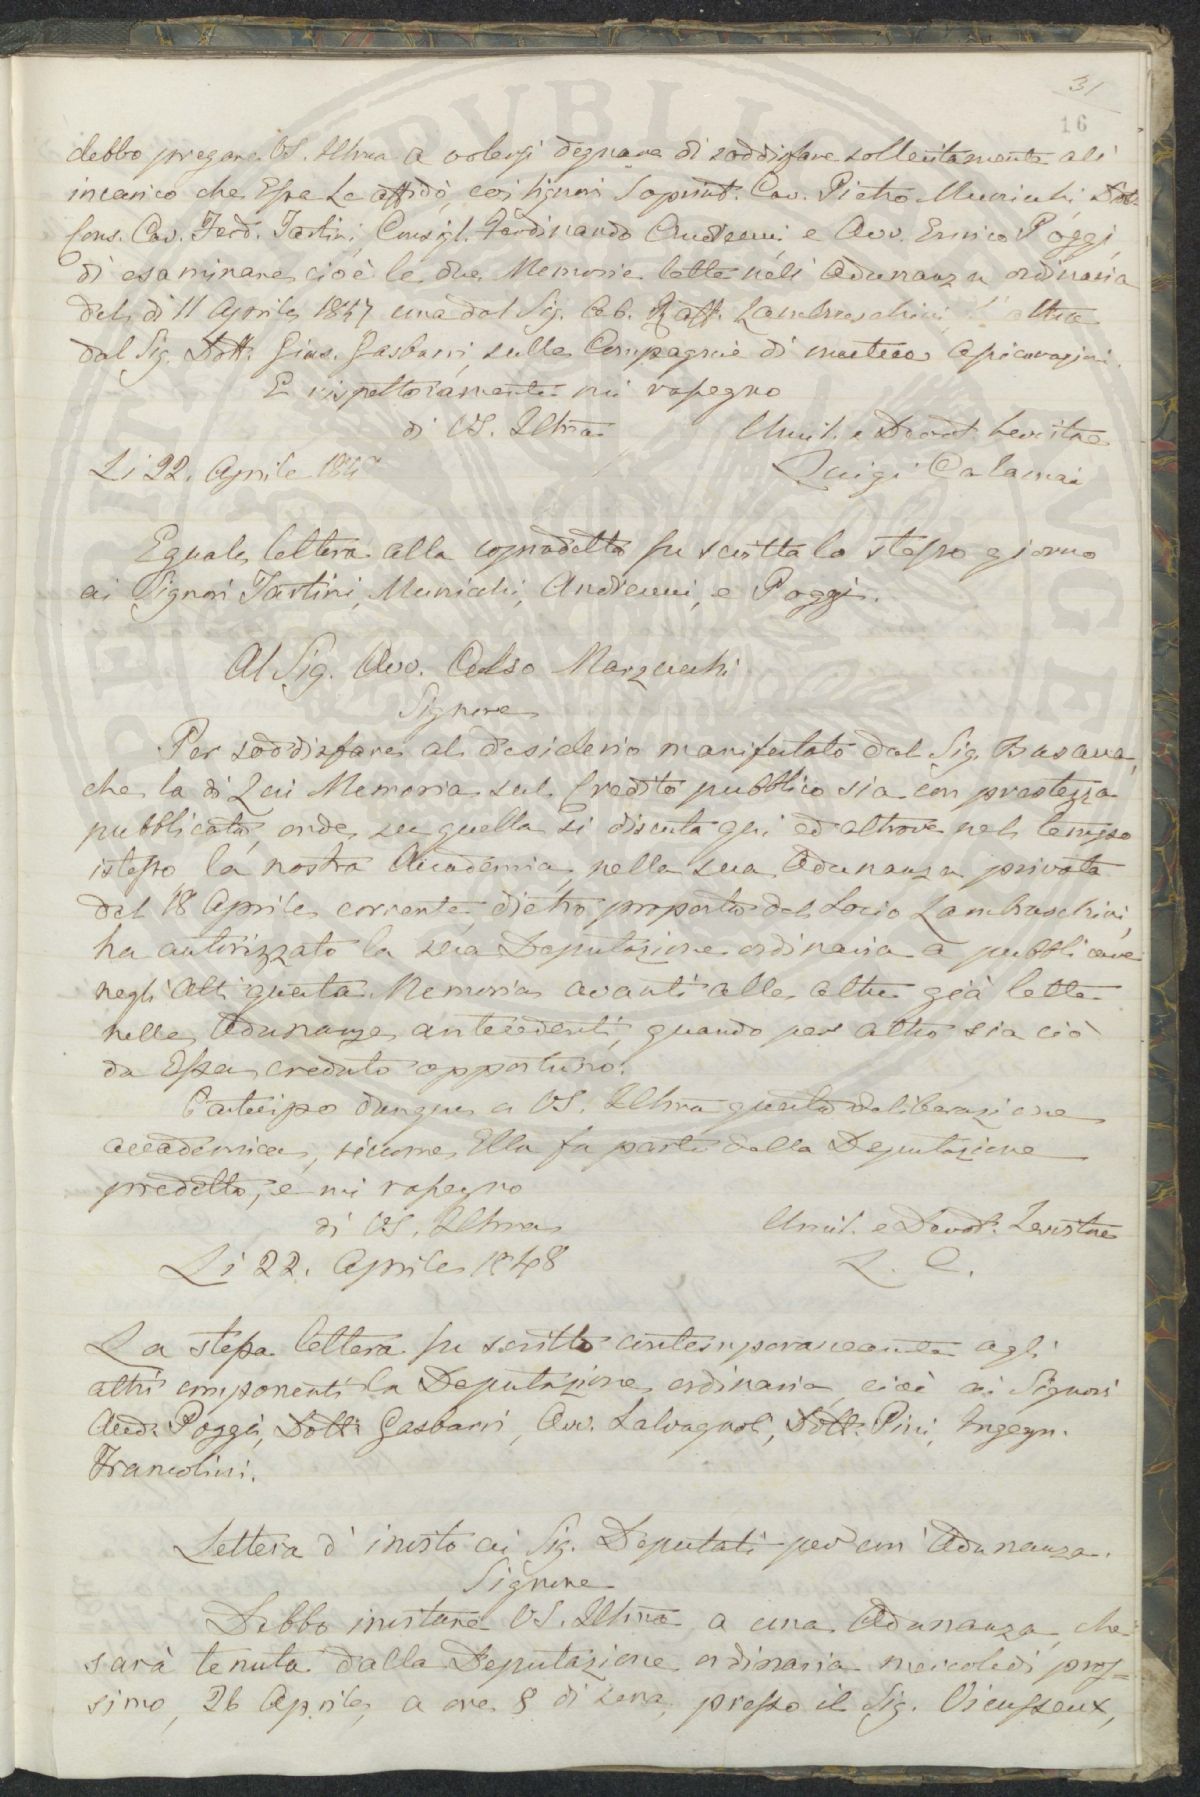 31
16
debbo pregare VS. Illma a volersi degnare di soddisfare sollecitamente all'
incarico che Essa Le affidò, coi Signori Soprint. Cav. Pietro Municchi, Dott.
Cons. Cav. Ferd. Tartini, Consigl. Ferdinando Andreucci e Avv. Enrico Poggi,
di esaminare cioè le due Memorie lette nell' Adunanza ordinaria
del dì 11 Aprile 1847 una dal Sig. Ab. Raff. Lambruschini, l' altra
dal Sig. Dott. Gius. Gasbarri, sulle Compagnie di mutue
E rispettosamente mi rassegno
di VS. Illma
Umil. e Devot. Servitore
Li 22. Aprile 184
Luigi Calamai
Eguale lettera alla sopradetta fu scritta lo stesso giorno
ai Signori Tartini, Municchi, Andreucci, e Poggi.
Al Sig. Avv. Celso Marzucchi
Signore
Per soddisfare al desiderio manifestato dal Sig. Busacca,
che la di Lui Memoria sul Credito pubblico sia con prestezza
pubblicata, onde su quella si discuta qui ed altrove nel tempo
istesso, la nostra Accademia, nella sua Adunanza privata
del 18 Aprile corrente, dietro proposta del Socio Lambruschini,
ha autorizzato la sua Deputazione ordinaria a pubblicare
negli Atti questa Memoria avanti alle altre già lette
nelle Adunanze antecedenti, quando per altro sia ciò
da Essa creduto opportuno.
Partecipo dunque a VS. Illma questa deliberazione
accademica, siccome Ella fa parte della Deputazione
predetta, e mi rassegno
di VS. Illma
Umil. e Devot. Servitore
Li 22. Aprile 1848
L. C.
La stessa lettera fu scritta contemporaneamente agli
altri componenti la Deputazione ordinaria, cioè ai Signori
Aud. Poggi, Dott. Gasbarri, Avv. Salvagnoli, Dott. Pini, Ingegn.
Francolini.
Lettera d' invito ai Sig. Deputati per un' Adunanza.
Signore
Debbo invitare VS. Illma a una Adunanza, che
sarà tenuta dalla Deputazione ordinaria mercoledì pros=
simo, 26 Aprile, a ore 8 di sera, presso il Sig. Vieusseux,